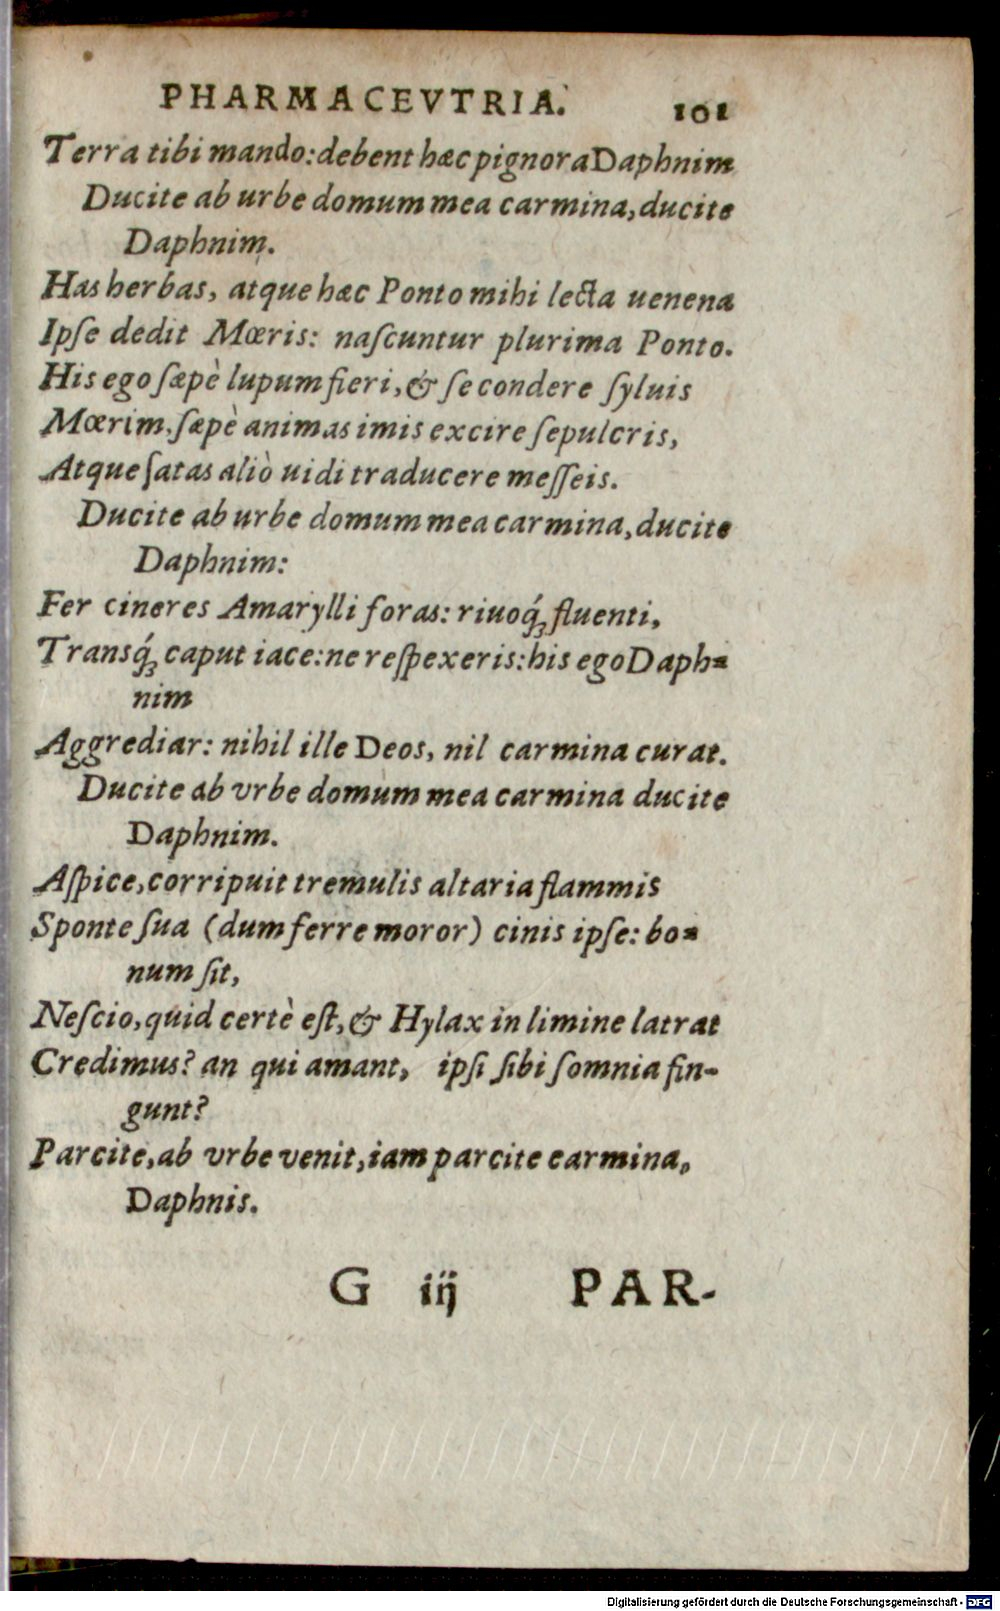 PHARMACEVTRIA. 101
Terra tibi mando: debent hæc pignora Daphnim
Ducite ab urbe domum mea carmina, ducite
Daphnim.
Has herbas, atque hæc Ponto mihi lecta uenena
Ipſe dedit Mœris: naſcuntur plurima Ponto.
His ego ſæpè lupum fieri, & ſe condere ſyluis
Mœrim. ſæpè animas imis excire ſepulcris,
Atque ſatas aliò uidi traducere meſſeis.
Ducite ab urbe domum mea carmina, ducite
Daphnim:
Fer cineres Amarylli foras: riuoq́ꝫ fluenti,
Transq́ꝫ caput iace: ne reſpexeris: his ego Daph-
nim
Aggrediar: nihil ille Deos, nil carmina curat.
Ducite ab vrbe domum mea carmina ducite
Daphnim.
Aſpice, corripuit tremulis altaria flammis
Sponte ſua (dum ferre moror) cinis ipſe: bo-
num ſit,
Neſcio, quid certè eſt, & Hylax in limine latrat
Credimus? an qui amant, ipſi ſibi ſomnia fin-
gunt?
Parcite, ab vrbe venit, iam parcite earmina,
Daphnis.
G iij PAR-
Digitalisierung gefördert durch die Deutsche Forschungsgemeinschaft - DFG